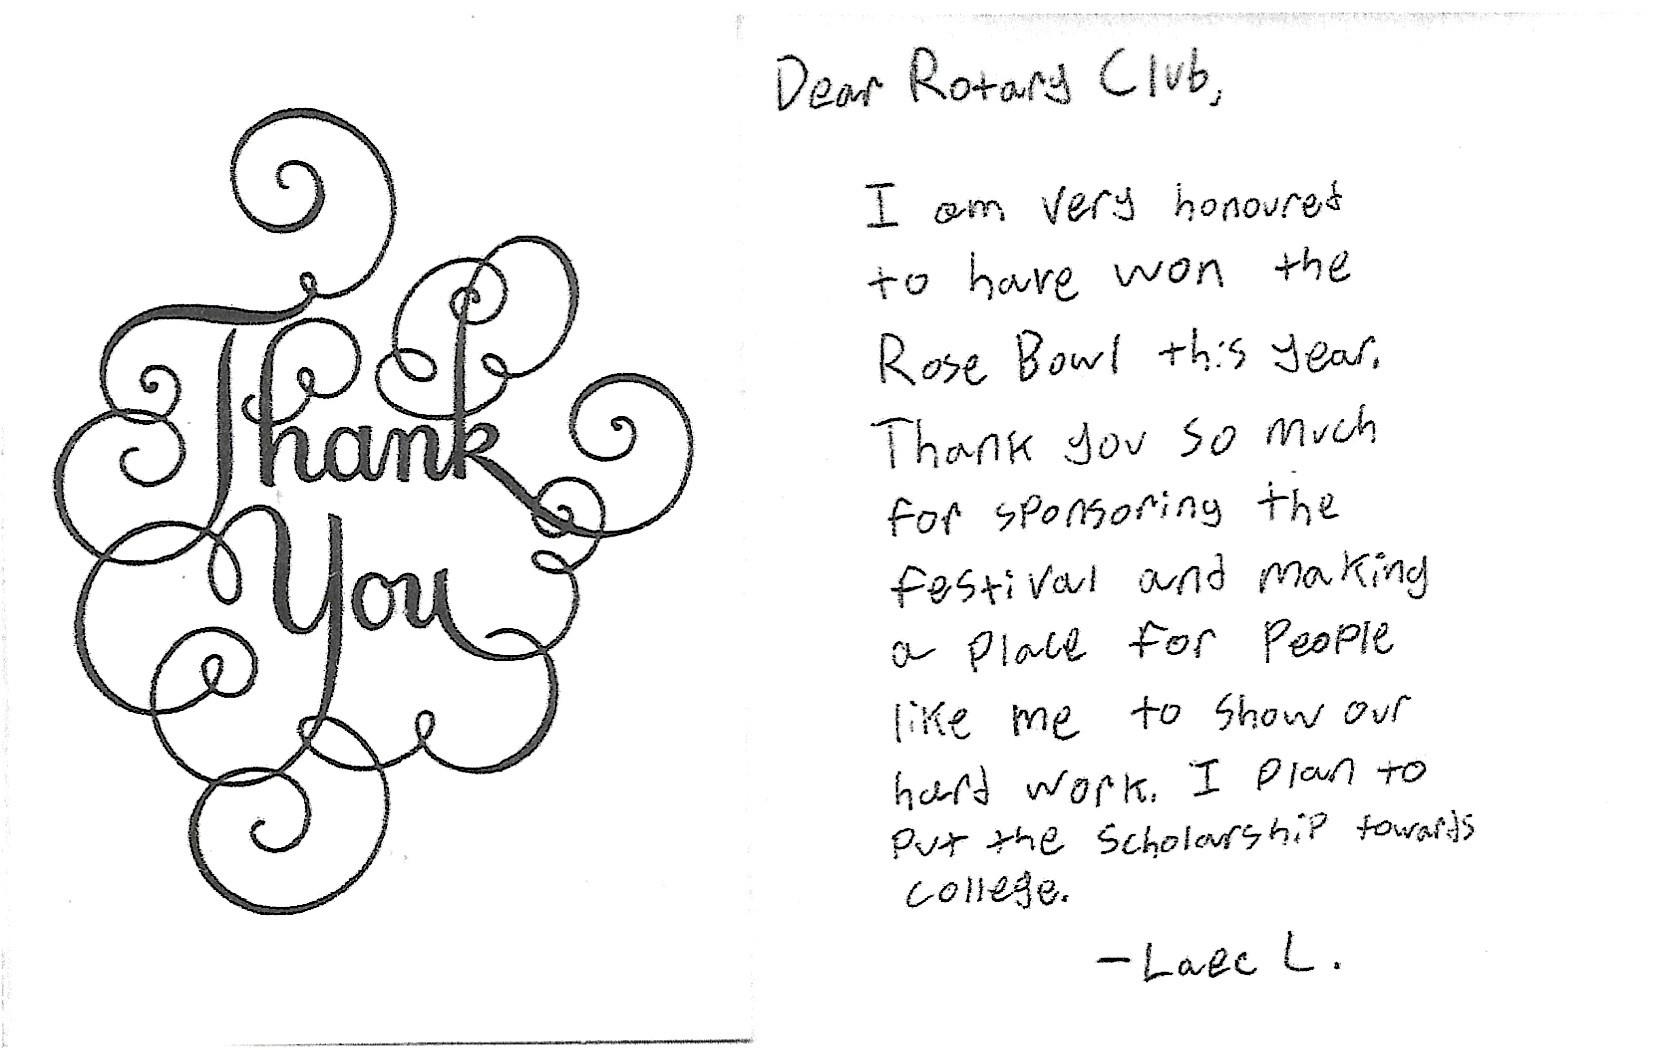 Thank
You
Dear Rotary Club,
I am very honoured
to have won the
Rose Bowl this year.
Thank you so much
for sponsoring the
festival and making
a place for people
like me to show our
hard work. I plan to
put the scholarship towards
college.
- Laec L.